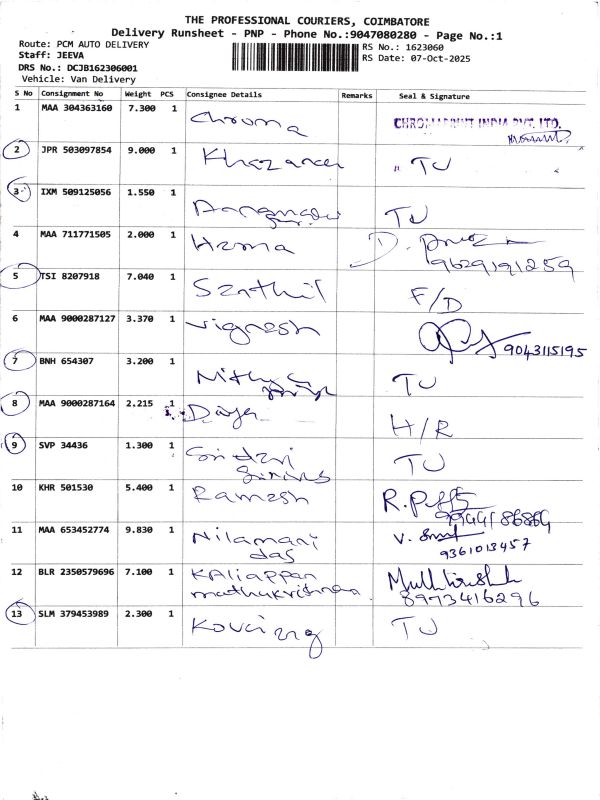 THE PROFESSIONAL COURIERS, COIMBATORE
Delivery Runsheet - PNP - Phone No.:9047080280 - Page No.:1
Route: PCM AUTO DELIVERY
RS No.: 1623060
Staff: JEEVA
RS Date: 07-Oct-2025
DRS No.: DCJB162306001
Vehicle: Van Delivery
S No Consignment No Weight PCS Consignee Details Remarks Seal & Signature
1 MAA 304363160 7.300 1 Chroma
2 JPR 503097854 9.000 1 TU
3 IXM 509125056 1.550 1 TU
4 MAA 711771505 2.000 1 Hema D.
9629191259
5 TSI 8207918 7.040 1 Senthil F/D
6 MAA 9000287127 3.370 1 Vignesh 9043115195
7 BNH 654307 3.200 1 Nithya TU
8 MAA 9000287164 2.215 1 Daya H/R
9 SVP 34436 1.300 1 Sridevi TU
10 KHR 501530 5.400 1 Ramesh R.
11 MAA 653452774 9.830 1 Nilamani V.
das 9361013457
12 BLR 2350579696 7.100 1 Kaliappan
muthukrishnan 8973416296
13 SLM 379453989 2.300 1 TU